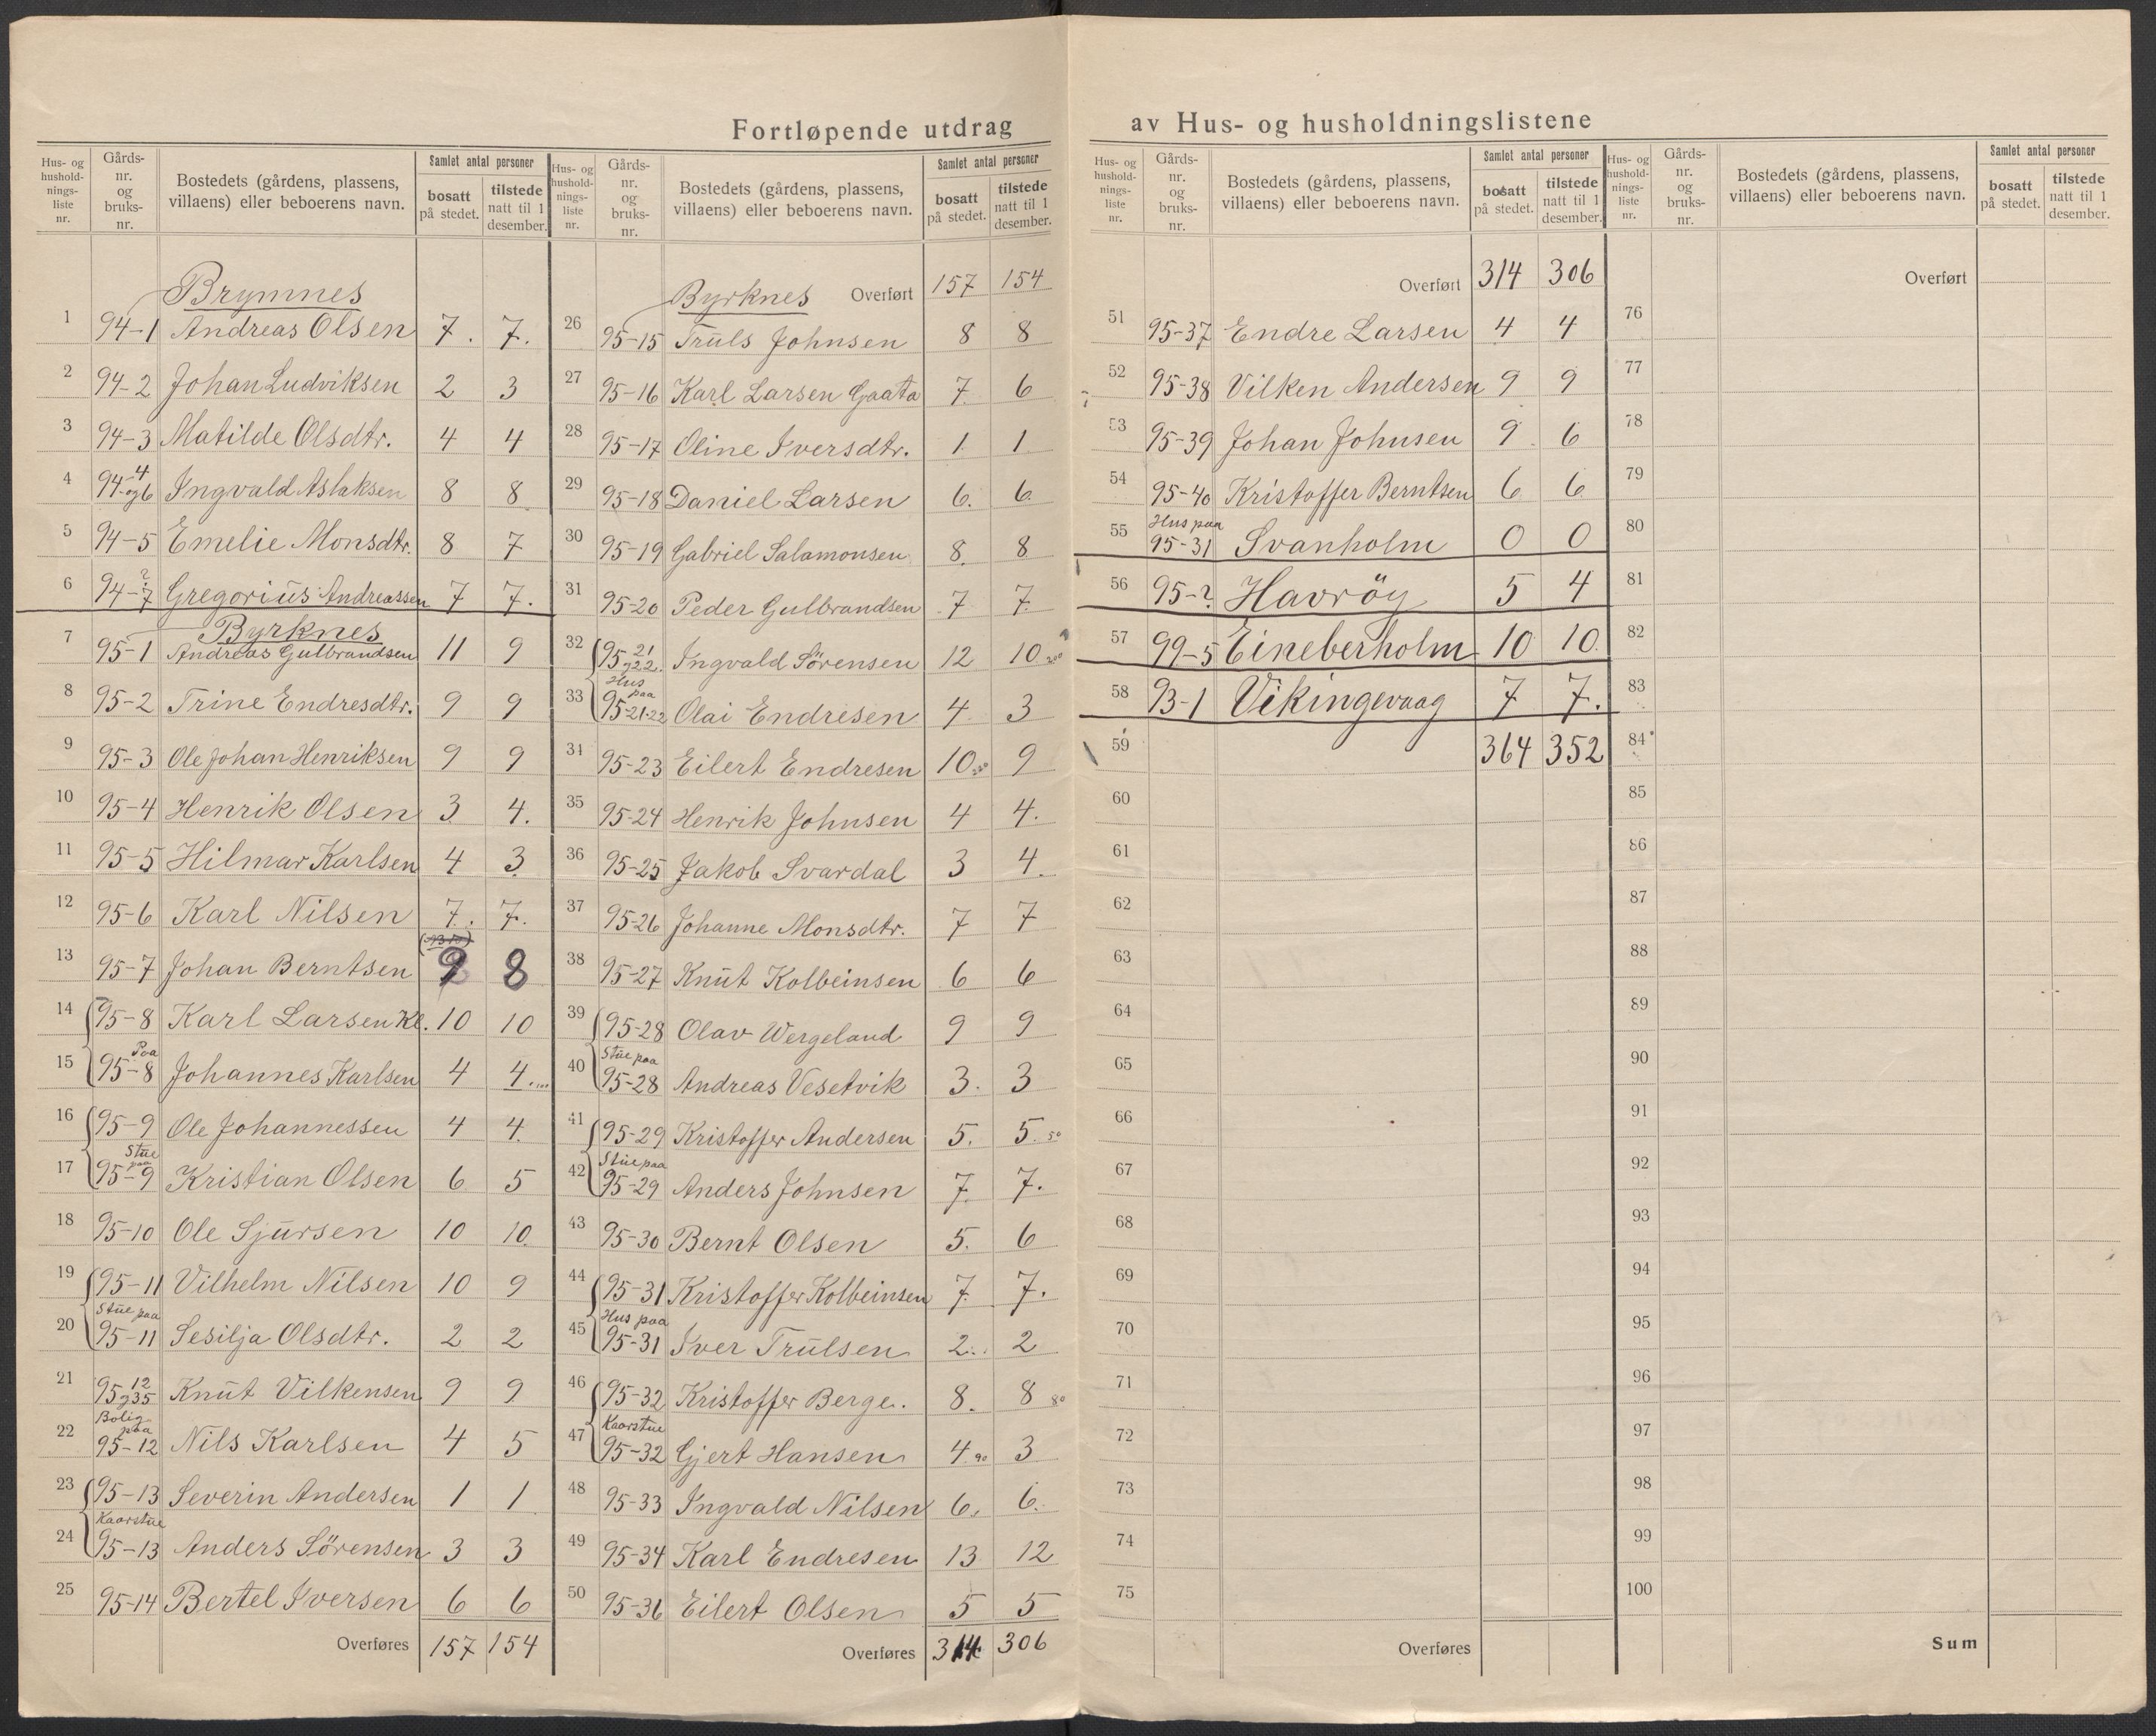 Fortløpende utdrag av Hus- og husholdningslistene
Hus- og husholdnings-liste nr. | Gårds-nr. og bruks-nr. | Bostedets (gårdens, plassens, villaens) eller beboerens navn. | Samlet antal personer | bosatt på stedet. | tilstede natt til 1 desember.
Brymnes
1 94-1 Andreas Olsen 7. 7.
2 94-2 Johan Ludviksen 2 3
3 94-3 Matilde Olsdtr. 4 4
4 94-4 og 6 Ingvald Aslaksen 8 8
5 94-5 Emelie Monsdtr. 8 7
6 94-7 ? Gregorius Andreassen 7 7.
Byrknes
7 95-1 Andreas Gulbrandsen 11 9
8 95-2 Trine Endresdtr. 9 9
9 95-3 Ole Johan Henriksen 9 9
10 95-4 Henrik Olsen 3 4.
11 95-5 Hilmar Karlsen 4 3
12 95-6 Karl Nilsen 7. 7.
13 95-7 Johan Berntsen 9 8
14 95-8 Karl Larsen Kl. 10 10
15 Paa 95-8 Johannes Karlsen 4 4.
16 95-9 Ole Johannessen 4 4.
17 Stue paa 95-9 Kristian Olsen 6 5
18 95-10 Ole Sjursen 10 10
19 95-11 Vilhelm Nilsen 10 9
20 Stue paa 95-11 Sesilja Olsdtr. 2 2
21 95-12 og 35 Knut Vilkensen 9 9
22 Bolig paa 95-12 Nils Karlsen 4 5
23 95-13 Severin Andersen 1 1
24 Kaarstue 95-13 Anders Sörensen 3 3
25 95-14 Bertel Iversen 6 6
Overføres 157 154
Hus- og husholdnings-liste nr. | Gårds-nr. og bruks-nr. | Bostedets (gårdens, plassens, villaens) eller beboerens navn. | Samlet antal personer | bosatt på stedet. | tilstede natt til 1 desember.
Byrknes Overført 157 154
26 95-15 Truls Johnsen 8 8
27 95-16 Karl Larsen Gaata 7. 6
28 95-17 Oline Iversdtr. 1 1
29 95-18 Daniel Larsen 6. 6.
30 95-19 Gabriel Salamonsen 8. 8
31 95-20 Peder Gulbrandsen 7 7.
32 95-21 og 22. Ingvald Sörensen 12 10
33 Hus paa 95-21-22 Olai Endresen 4 3
34 95-23 Eilert Endresen 10 9
35 95-24 Henrik Johnsen 4 4.
36 95-25 Jakob Svardal 3 4.
37 95-26 Johanne Monsdtr. 7 7
38 95-27 Knut Kolbeinsen 6 6
39 95-28 Olav Wergeland 9 9
40 Stue paa 95-28 Andreas Vesetvik 3. 3
41 95-29 Kristoffer Andersen 5. 5.
42 Stue paa 95-29 Anders Johnsen 7. 7.
43 95-30 Bernt Olsen 5. 6
44 95-31 Kristoffer Kolbeinsen 7. 7.
45 Hus paa 95-31 Iver Trulsen 2. 2
46 95-32 Kristoffer Berge. 8. 8
47 Kaarstue 95-32 Gjert Hansen 4 3
48 95-33 Ingvald Nilsen 6. 6.
49 95-34 Karl Endresen 13 12
50 95-36 Eilert Olsen 5 5
Overføres 314 306
Hus- og husholdnings-liste nr. | Gårds-nr. og bruks-nr. | Bostedets (gårdens, plassens, villaens) eller beboerens navn. | Samlet antal personer | bosatt på stedet. | tilstede natt til 1 desember.
Overført 314 306
51 95-37 Endre Larsen 4 4
52 95-38 Vilken Andersen 9 9
53 95-39 Johan Johnsen 9. 6
54 95-40 Kristoffer Berntsen 6 6
55 Hus paa 95-31 Svanholm 0 0
56 95-? Havröy 5 4
57 99-5 Eineberholm 10 10.
58 93-1 Vikingevaag 7 7.
59 364 352
60
61
62
63
64
65
66
67
68
69
70
71
72
73
74
75
Overføres
Hus- og husholdnings-liste nr. | Gårds-nr. og bruks-nr. | Bostedets (gårdens, plassens, villaens) eller beboerens navn. | Samlet antal personer | bosatt på stedet. | tilstede natt til 1 desember.
Overført
76
77
78
79
80
81
82
83
84
85
86
87
88
89
90
91
92
93
94
95
96
97
98
99
100
Sum